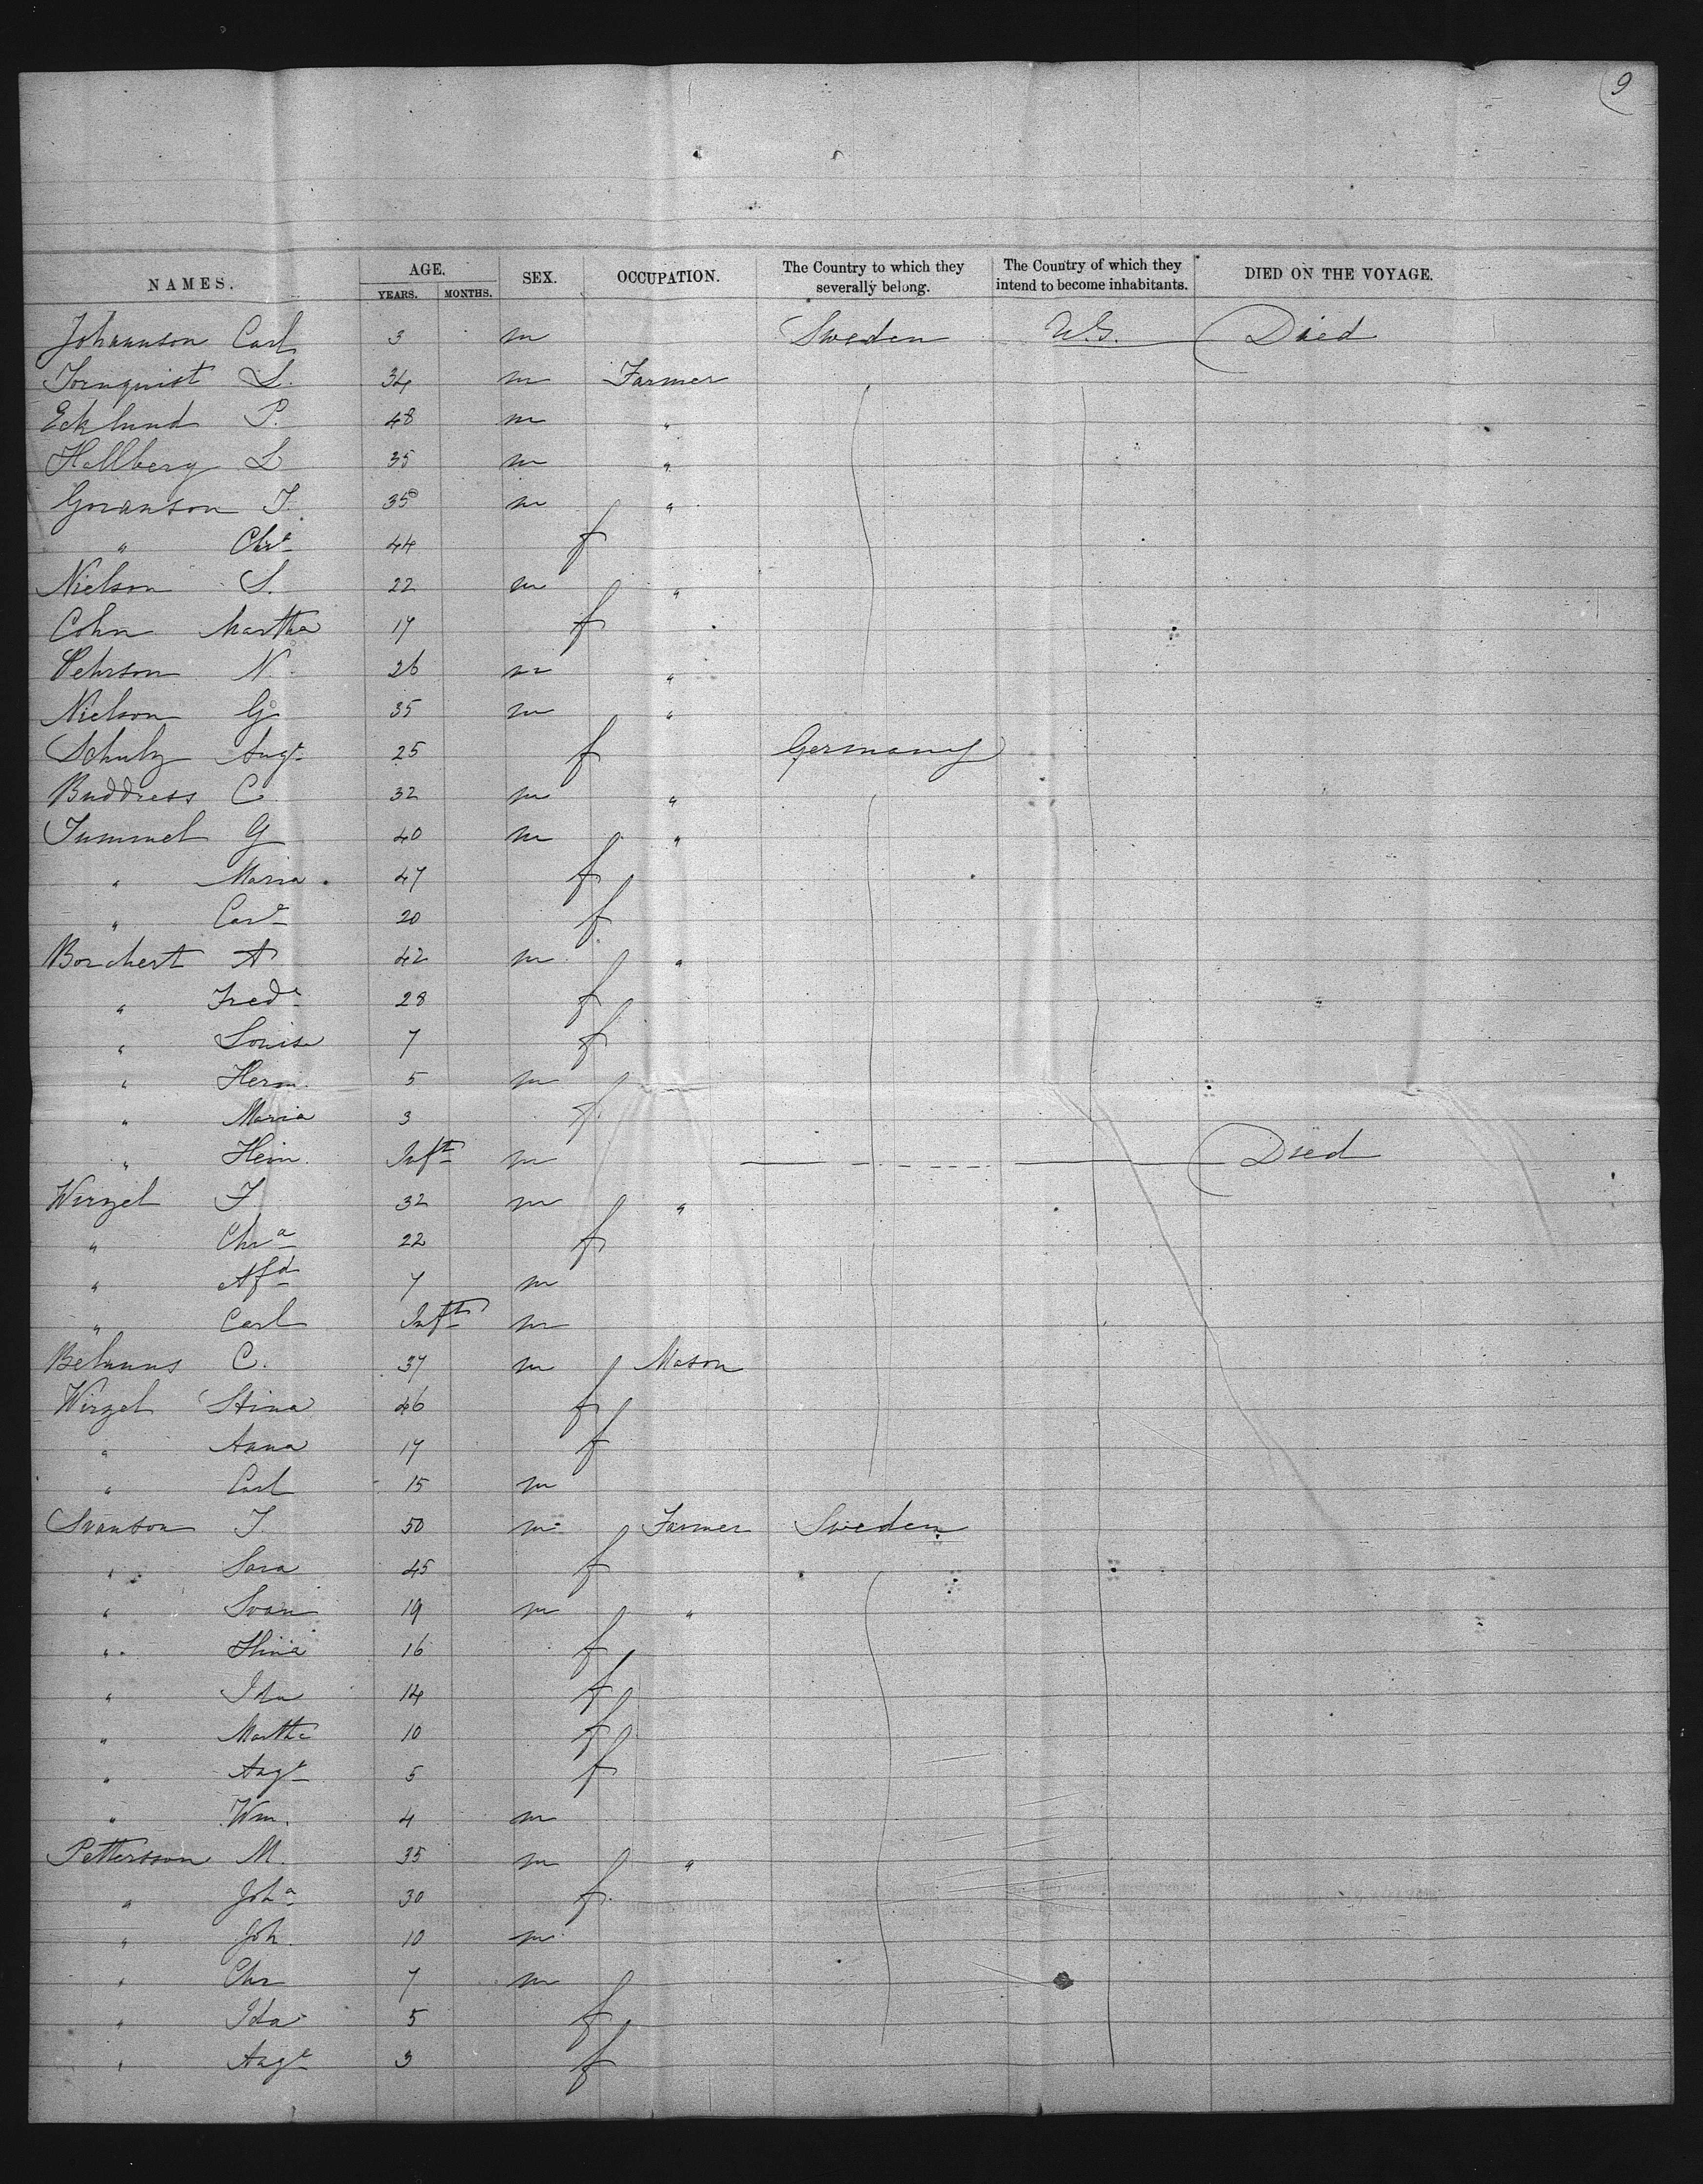 9
NAMES. AGE. YEARS. MONTHS. SEX. OCCUPATION. The Country to which they severally belong. The Country of which they intend to become inhabitants. DIED ON THE VOYAGE.
Johannson Carl 3 m Sweden U.S. Died
Tornquist L. 34 m Farmer
Ecklund P. 48 m "
Hellberg L 35 m "
Goranson J. 35 m "
" Chre 44 f
Nielson S. 22 m "
Cohn Martha 17 f
Pehrson N. 26 m "
Nielson G 35 m "
Schulz Auge 25 f Germany
Buddress C 32 m "
Tummel G 40 m "
" Maria 47 f
" Care 20 f
Borchert A 42 m "
" Frede 28 f
" Louise 7 f
" Herm. 5 m
" Maria 3 f
" Hein. Inft m Died
Wirzel F 32 m "
" Chra 22 f
" Afd 7 m
" Carl Inft m
C. 37 m Mason
Wirzel Stina 46 f
" Anna 17 f
" Carl 15 m
Svanson J. 50 m Farmer Sweden
" Sara 45 f
" Svan 19 m "
" 16 f
" Ida 14 f
" Martha 10 f
" Auge 5 f
" Wm. 4 m
Pettersson M. 35 m "
" Joha 30 f
" Joh. 10 m
" Chr 7 m
" Ida 5 f
" Auge 3 f